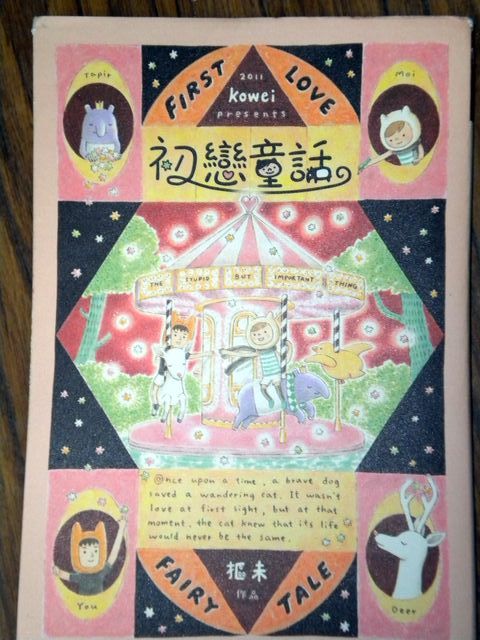 Tapir
FIRST LOVE
2011
kowei
presents
Moi
初戀童話
THE STUPID BUT IMPORTANT THING
Once upon a time, a brave dog
saved a wandering cat. It wasn't
love at first sight, but at that
moment, the cat knew that its life
would never be the same.
You
FAIRY TALE
抠未
作品
Deer